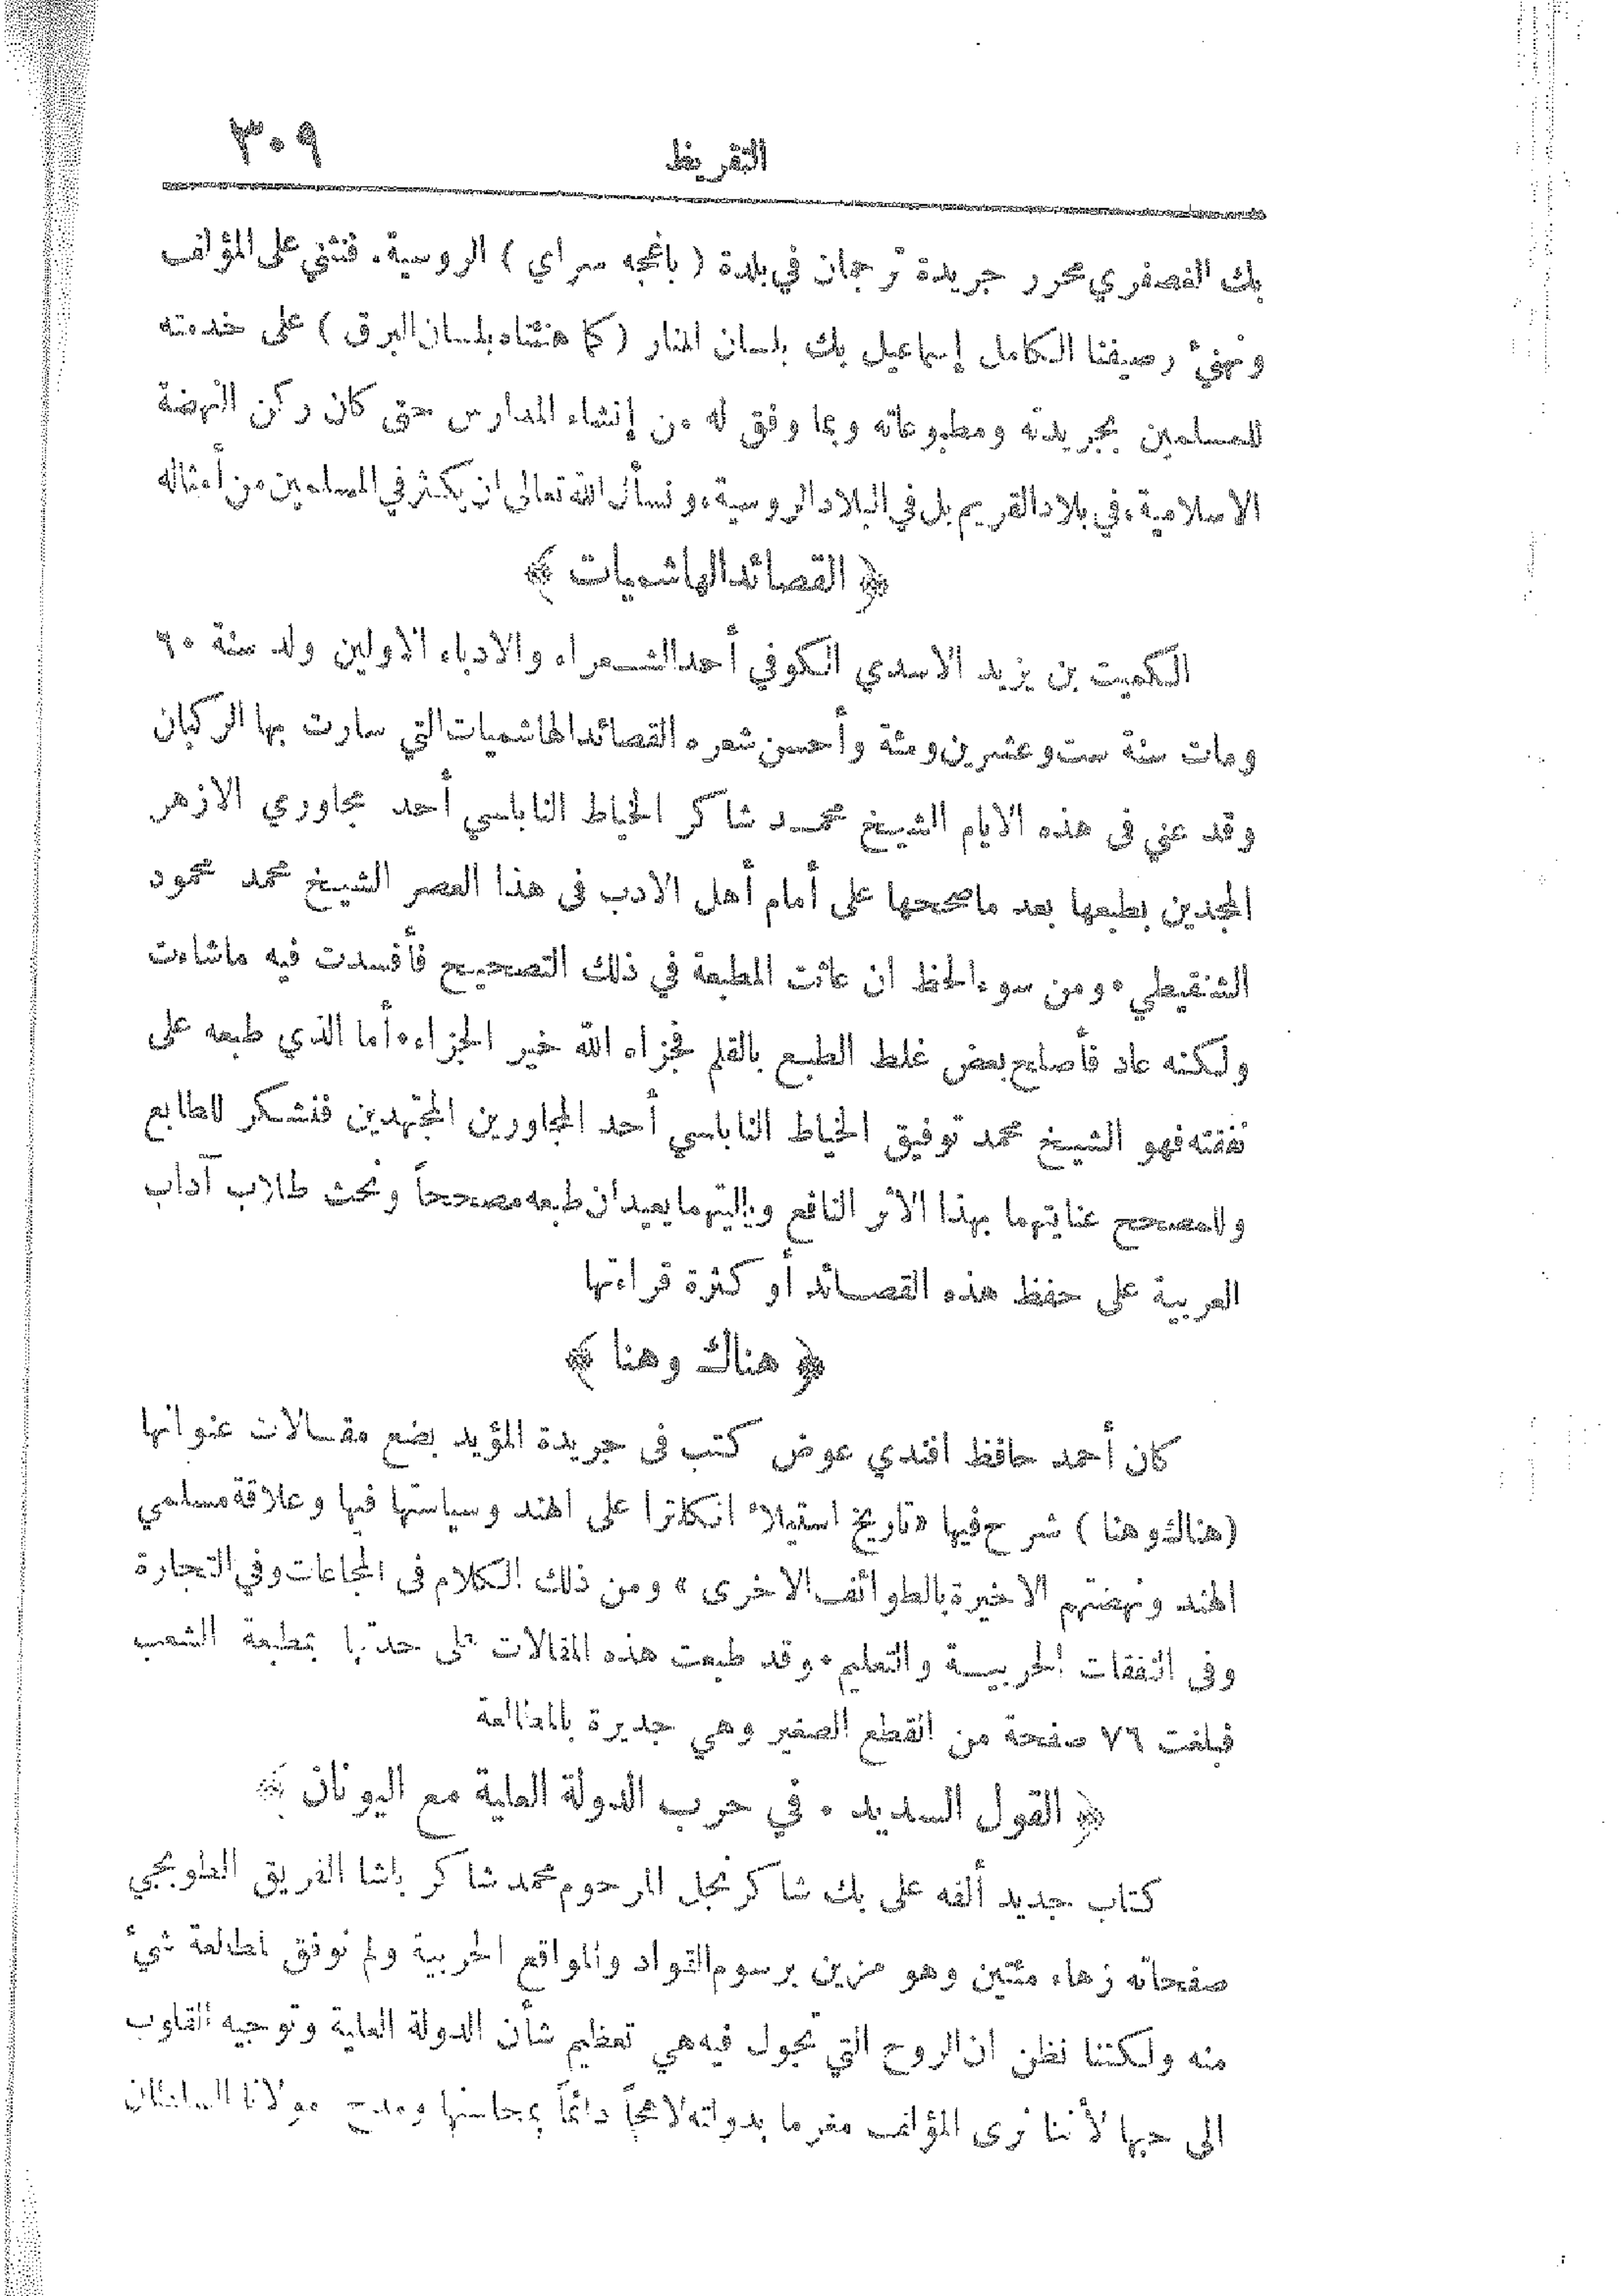 التقريظ ٣٠٩
بك الغصفري محرر جريدة ترجمان في بلدة ( باغجه سراي ) الروسية. فنثني على المؤلف
ونهنئ رصيفنا الكامل إسماعيل بك بلسان المنار ( كما هنئناه بلسان البرق ) على خدمته
للمسلمين بجريدته ومطبوعاته وبما وفق له من إنشاء المدارس حتى كان ركن النهضة
الاسلامية، في بلاد القريم بل في البلاد الروسية، ونسأل الله تعالى ان يكثر في المسلمين من أمثاله
﴿ القصائد الهاشميات ﴾
الكميت بن يزيد الاسدي الكوفي أحد الشعراء والادباء الاولين ولد سنة ٦٠
ومات سنة ست وعشرين ومئة وأحسن شعره القصائد الهاشميات التي سارت بها الركبان
وقد عني فى هذه الايام الشيخ محمد شاكر الخياط النابلسي أحد مجاوري الازهر
المجدين بطبعها بعد ما صححها على أمام أهل الادب فى هذا العصر الشيخ محمد محمود
الشنقيطي. ومن سوء الحظ ان عاثت المطبعة في ذلك التصحيح فأفسدت فيه ماشاءت
ولكنه عاد فأصلح بعض غلط الطبع بالقلم فجزاه الله خير الجزاء. أما الذي طبعه على
نفقته فهو الشيخ محمد توفيق الخياط النابلسي أحد المجاورين المجتهدين فنشكر للطابع
وللمصحح عنايتهما بهذا الاثر النافع وياليتهما يعيدان طبعه مصححاً ونحث طلاب آداب
العربية على حفظ هذه القصائد أو كثرة قراءتها
﴿ هناك وهنا ﴾
كان أحمد حافظ افندي عوض كتب فى جريدة المؤيد بضع مقالات عنوانها
(هناك وهنا ) شرح فيها «تاريخ استيلاء انكلترا على الهند وسياستها فيها وعلاقة مسلمي
الهند ونهضتهم الاخيرة بالطوائف الاخرى » ومن ذلك الكلام فى المجاعات وفي التجارة
وفى النفقات الحربية والتعليم. وقد طبعت هذه المقالات على حدتها بمطبعة الشعب
فبلغت ٧٦ صفحة من القطع الصغير وهي جديرة بالمطالعة
﴿ القول السديد . في حرب الدولة العلية مع اليونان ﴾
كتاب جديد ألفه على بك شاكر نجل المرحوم محمد شاكر باشا الفريق الطوبجي
صفحاته زهاء مئتين وهو مزين برسوم القواد والمواقع الحربية ولم نوفق لمطالعة شيء
منه ولكننا نظن ان الروح التي تجول فيه هي تعظيم شأن الدولة العلية وتوجيه القلوب
الى حبها لأننا نرى المؤلف مغرما بدولته لاهجاً دائماً بمحاسنها ومدح مولانا السلطان